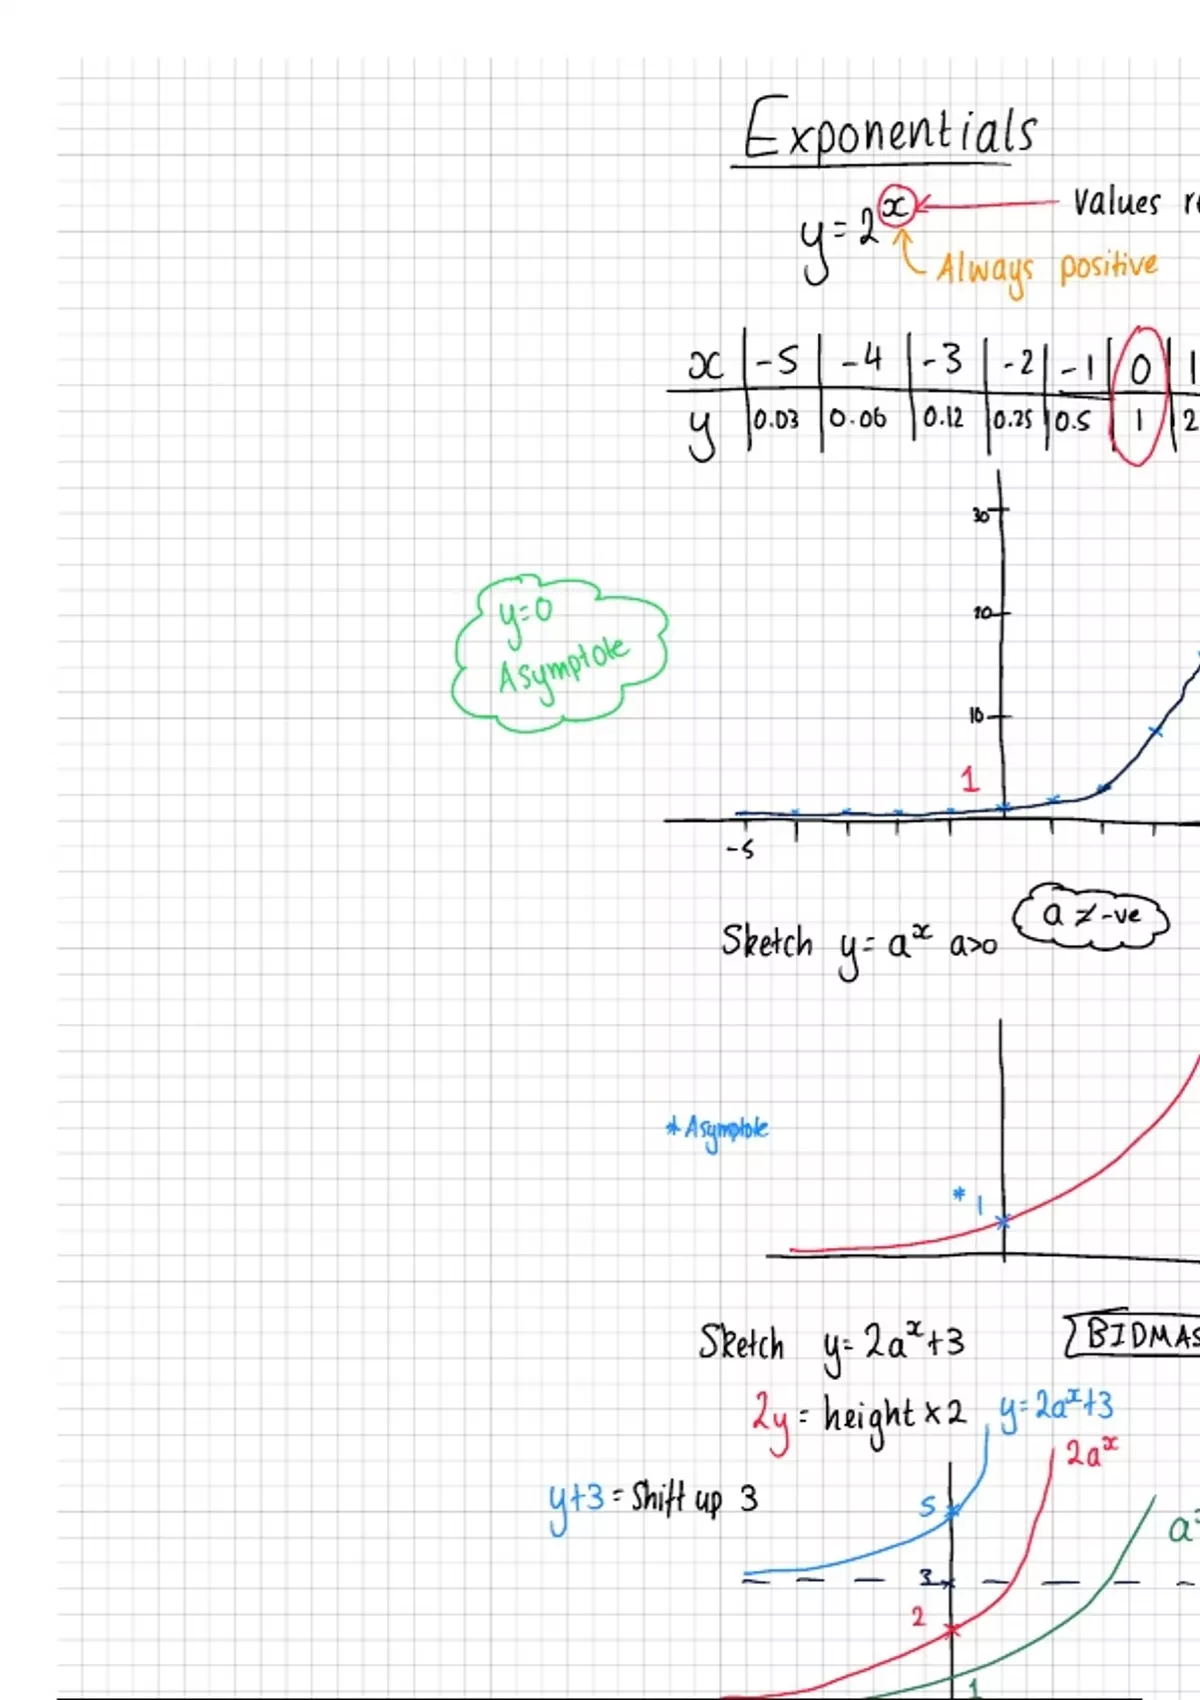 Exponentials
y = 2^x ← Values
Always positive
x | -5 | -4 | -3 | -2 | -1 | 0 | 1
y | 0.03 | 0.06 | 0.12 | 0.25 | 0.5 | 1 | 2
30
20
y=0
Asymptote
10
1
-5
a ≠ -ve
Sketch y = a^x a>0
* Asymptote
* 1
Sketch y = 2a^x+3
BIDMAS
2y = height × 2
y = 2a^x+3
2a^x
y+3 = Shift up 3
5
a^x
3
2
1